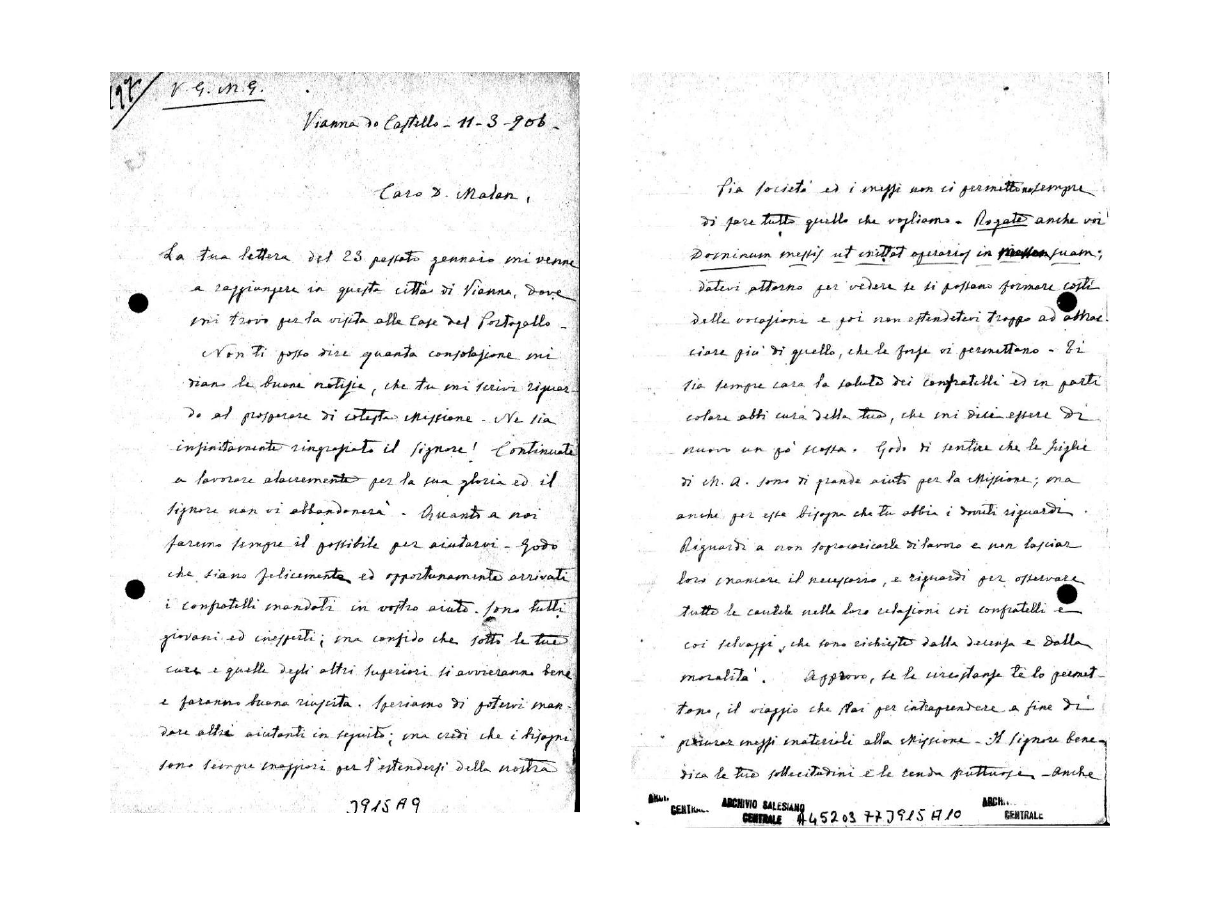 197
V. G. M. G.
Vianna do Castello - 11-3-906 -
Caro D. Malan,
La tua lettera del 23 passato gennaio mi venne
a raggiungere in questa città di Vianna, dove
mi trovo per la visita alle Case del Portogallo -
Non ti posso dire quanta consolazione mi
diano le buone notizie, che tu mi scrivi riguar-
do al prosperare di cotesta Missione - Ne sia
infinitamente ringraziato il Signore! Continuate
a lavorare alacremente per la sua gloria ed il
Signore non vi abbandonerà - Quanto a noi
faremo sempre il possibile per aiutarvi - Godo
che siano felicemente ed opportunamente arrivati
i confratelli mandati in vostro aiuto. Sono tutti
giovani ed inesperti; ma confido che sotto le tue
cure e quelle degli altri Superiori si avvieranno bene
e faranno buona riuscita. Speriamo di potervi man-
dare altri aiutanti in seguito; ma credi che i bisogni
sono sempre maggiori per l'estendersi della nostra
J915A9
Pia Società ed i mezzi non ci permettono sempre
di fare tutto quello che vogliamo - Rogate anche voi
Dominum messis ut mittat operarios in messem suam;
datevi attorno per vedere se si possano formare costì
delle vocazioni e poi non estendetevi troppo ad abbrac-
ciare più di quello, che le forze vi permettano - Ti
sia sempre cara la salute dei confratelli ed in parti
colare abbi cura della tua, che mi dici essere di
nuovo un po' scossa. Godo di sentire che le Figlie
di M. A. sono di grande aiuto per la Missione; ma
anche per esse bisogna che tu abbia i dovuti riguardi.
Riguardi a non sopracaricarle di lavoro e non lasciar
loro mancare il necessario, e riguardi per osservare
tutte le cautele nelle loro relazioni coi confratelli e
coi selvaggi, che sono richieste dalla decenza e dalla
moralità. Approvo, se le circostanze te lo permet-
tano, il viaggio che stai per intraprendere a fine di
procurar mezzi materiali alla Missione - Il Signore bene-
dica le tue sollecitudini e le renda fruttuose - Anche
CENTRALE
ARCHIVIO SALESIANO
CENTRALE
A4520377 J915A10
ARCH..
CENTRALE